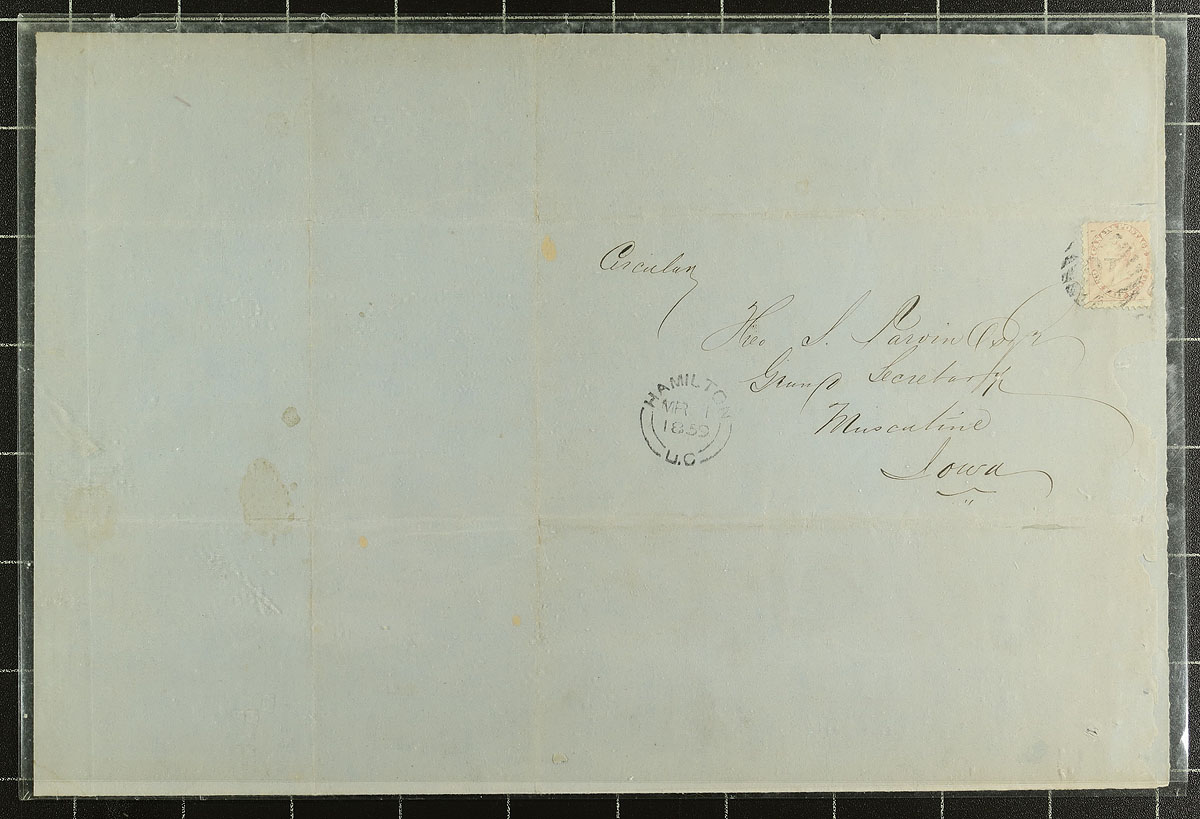 Circular
Theo S. Parvin Esqr
Grand Secretary
Muscatine
Iowa
HAMILTON
MR 1
1859
U.C